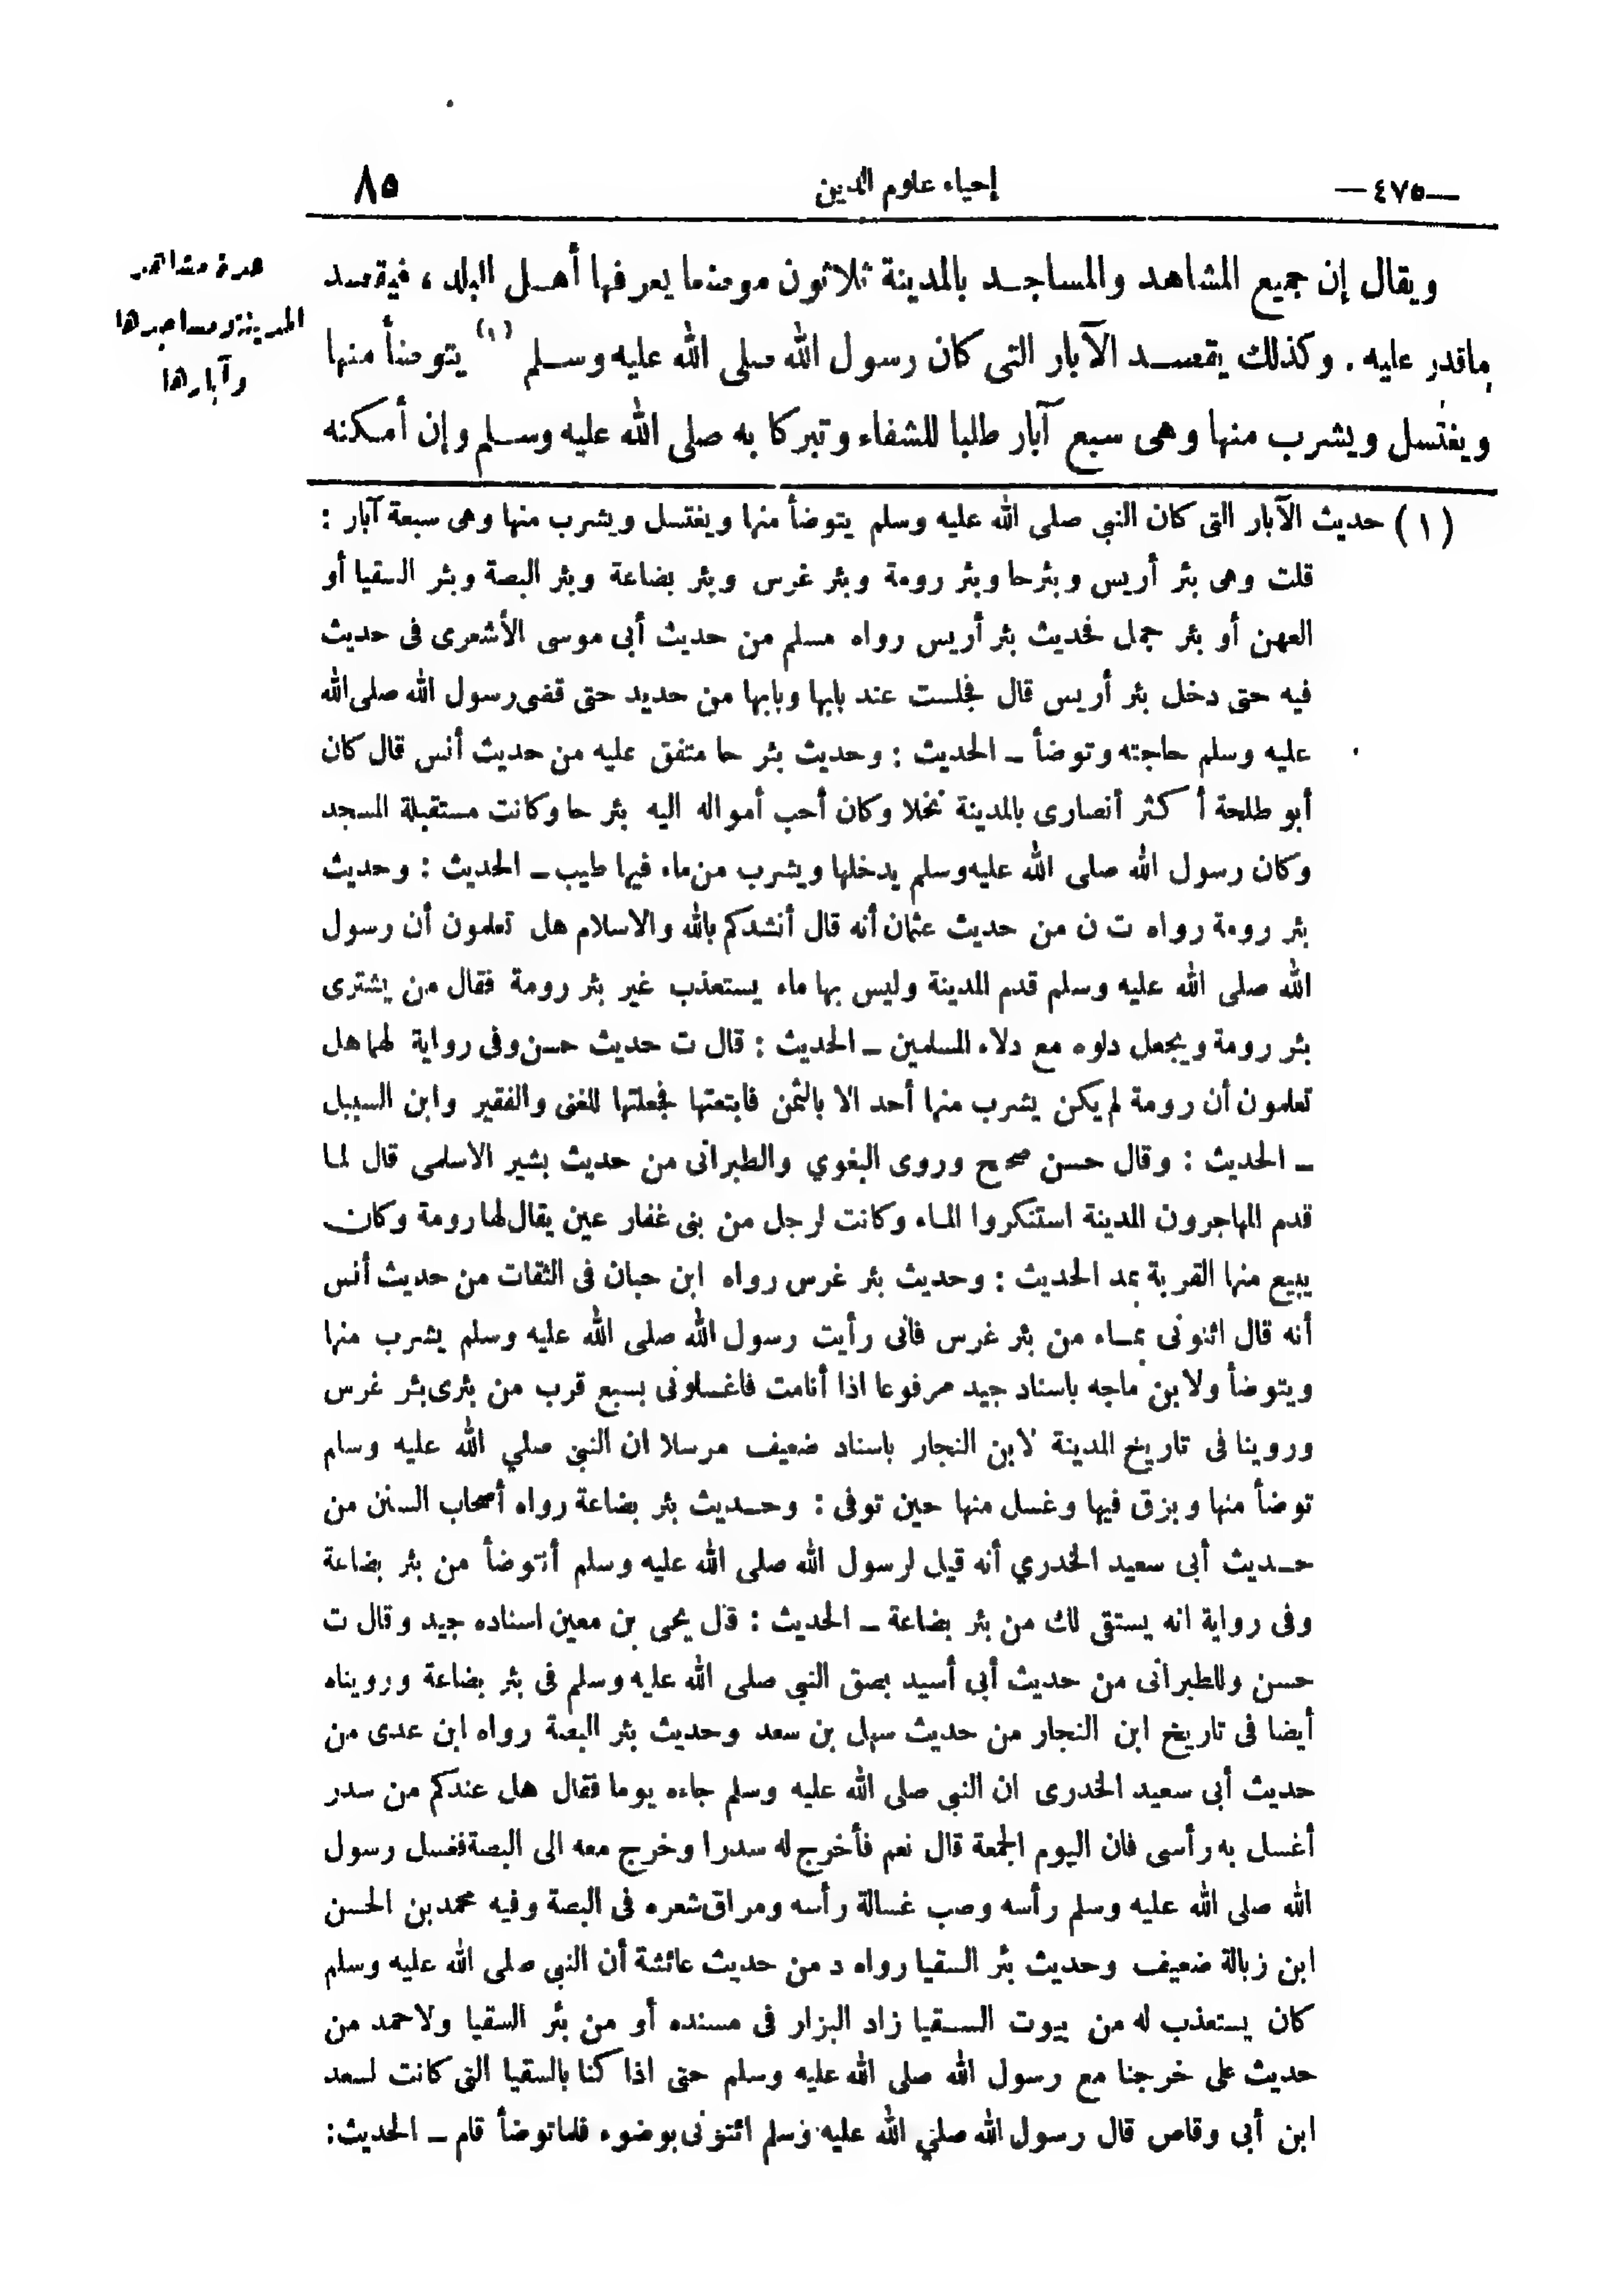 —٤٧٥—
إحياء علوم الدين
٨٥
ويقال إن جميع المشاهد والمساجد بالمدينة ثلاثون موضعا يعرفها أهل البلد ، فيقصد
ماقدر عليه . وكذلك يقصد الآبار التى كان رسول الله صلى الله عليه وسلم (١) يتوضأ منها
ويغتسل ويشرب منها وهى سبع آبار طلبا للشفاء وتبركا به صلى الله عليه وسلم وإن أمكنه
عدة مشاهد
المدينة ومساجدها
وآبارها
(١) حديث الآبار التى كان النبي صلى الله عليه وسلم يتوضأ منها ويغتسل ويشرب منها وهى سبعة آبار :
قلت وهى بئر أريس وبئرحا وبئر رومة وبئر غرس وبئر بضاعة وبئر البصة وبئر السقيا أو
العهن أو بئر جمل فحديث بئر أريس رواه مسلم من حديث أبى موسى الأشعرى فى حديث
فيه حتى دخل بئر أريس قال فجلست عند بابها وبابها من حديد حتى قضى رسول الله صلى الله
عليه وسلم حاجته وتوضأ ـ الحديث : وحديث بئر حا متفق عليه من حديث أنس قال كان
أبو طلحة أكثر أنصارى بالمدينة نخلا وكان أحب أمواله اليه بئر حا وكانت مستقبلة المسجد
وكان رسول الله صلى الله عليه وسلم يدخلها ويشرب من ماء فيها طيب ـ الحديث : وحديث
بئر رومة رواه ت ن من حديث عثمان أنه قال أنشدكم بالله والاسلام هل تعلمون أن رسول
الله صلى الله عليه وسلم قدم المدينة وليس بها ماء يستعذب غير بئر رومة فقال من يشترى
بئر رومة ويجعل دلوه مع دلاء المسلمين ـ الحديث : قال ت حديث حسن وفى رواية لهما هل
تعلمون أن رومة لم يكن يشرب منها أحد الا بالثمن فابتعتها فجعلتها للغنى والفقير وابن السبيل
ـ الحديث : وقال حسن صحيح وروى البغوي والطبرانى من حديث بشير الاسلمى قال لما
قدم المهاجرون المدينة استنكروا الماء وكانت لرجل من بنى غفار عين يقال لها رومة وكان
يبيع منها القربة بمد الحديث : وحديث بئر غرس رواه ابن حبان فى الثقات من حديث أنس
أنه قال ائتونى بماء من بئر غرس فانى رأيت رسول الله صلى الله عليه وسلم يشرب منها
ويتوضأ ولابن ماجه باسناد جيد مرفوعا اذا أنامت فاغسلونى بسبع قرب من بئرى بئر غرس
وروينا فى تاريخ المدينة لابن النجار باسناد ضعيف مرسلا ان النبي صلي الله عليه وسلم
توضأ منها وبزق فيها وغسل منها حين توفى : وحديث بئر بضاعة رواه أصحاب السنن من
حديث أبى سعيد الخدري أنه قيل لرسول الله صلى الله عليه وسلم أنتوضأ من بئر بضاعة
وفى رواية انه يستقى لك من بئر بضاعة ـ الحديث : قال يحى بن معين اسناده جيد وقال ت
حسن وللطبرانى من حديث أبى أسيد بصق النبي صلى الله عليه وسلم فى بئر بضاعة ورويناه
أيضا فى تاريخ ابن النجار من حديث سهل بن سعد وحديث بئر البصة رواه ابن عدى من
حديث أبى سعيد الخدرى ان النبي صلى الله عليه وسلم جاءه يوما فقال هل عندكم من سدر
أغسل به رأسى فان اليوم الجمعة قال نعم فأخرج له سدرا وخرج معه الى البصة فغسل رسول
الله صلى الله عليه وسلم رأسه وصب غسالة رأسه ومراق شعره فى البصة وفيه محمد بن الحسن
ابن زبالة ضعيف وحديث بئر السقيا رواه د من حديث عائشة أن النبي صلى الله عليه وسلم
كان يستعذب له من بيوت السقيا زاد البزار فى مسنده أو من بئر السقيا ولاحمد من
حديث على خرجنا مع رسول الله صلى الله عليه وسلم حتى اذا كنا بالسقيا التى كانت لسعد
ابن أبى وقاص قال رسول الله صلي الله عليه وسلم ائتونى بوضوء فلما توضأ قام ـ الحديث: